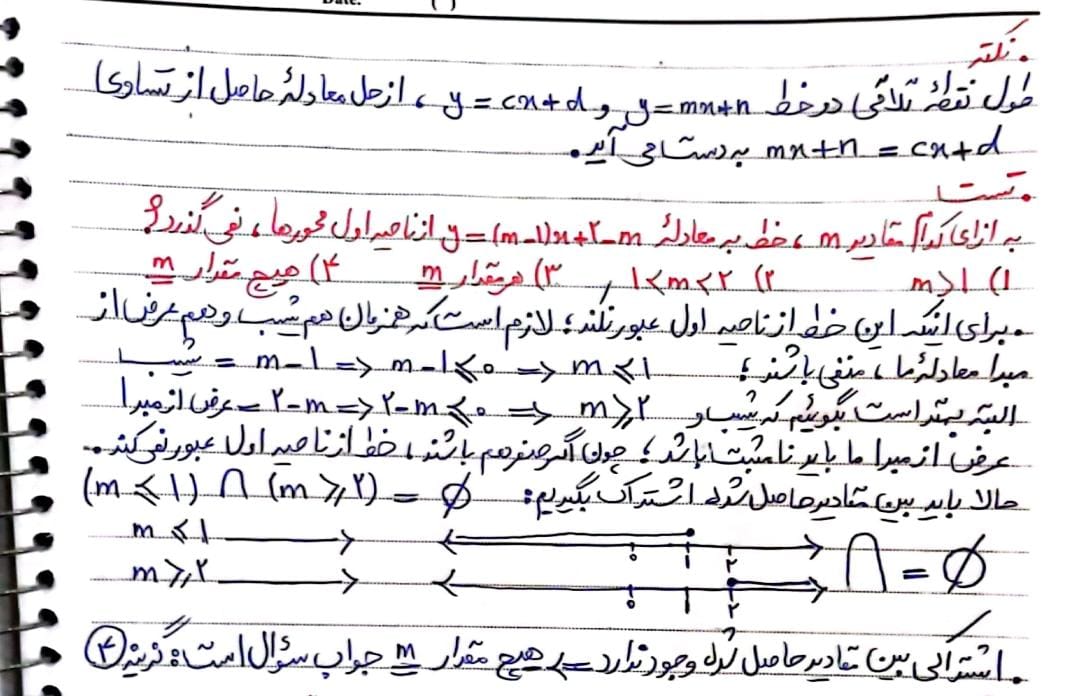 Date: ( )
• نکته
طول نقطهٔ تلاقی دو خط y=mx+n و y=cx+d ، از حل معادلهٔ حاصل از تساوی
mx+n = cx+d به دست می آید.
• تست
به ازای کدام مقادیر m ، خط به معادلهٔ y=(m-1)x+۲-m از ناحیه اول محورها ، نمی گذرد؟
۱) m>1 ۲) 1<m<۲ , ۳) هر مقدار m ۴) هیچ مقدار m
• برای اینکه این خط از ناحیه اول عبور نکند ؛ لازم است که همزمان هم شیب و هم عرض از
مبدا معادلهٔ ما ، منفی باشند ؛ شیب = m-1 => m-1⩽0 => m⩽1
البته بهتر است بگوئیم که شیب و عرض از مبدا = ۲-m => ۲-m⩽0 => m⩾۲
عرض از مبدا ما باید نامثبت باشد ؛ چون اگر صفر هم باشند ، خط از ناحیه اول عبور نمی کند..
حالا باید بین مقادیر حاصل شده اشتراک بگیریم: (m⩽1) ∩ (m⩾۲) = ∅
m⩽1 ۰ ۱ ۲ ∩ = ∅
m⩾۲ ۰ ۱ ۲
• اشتراکی بین مقادیر حاصل شده وجود ندارد => هیچ مقدار m جواب سؤال است: گزینه ۴